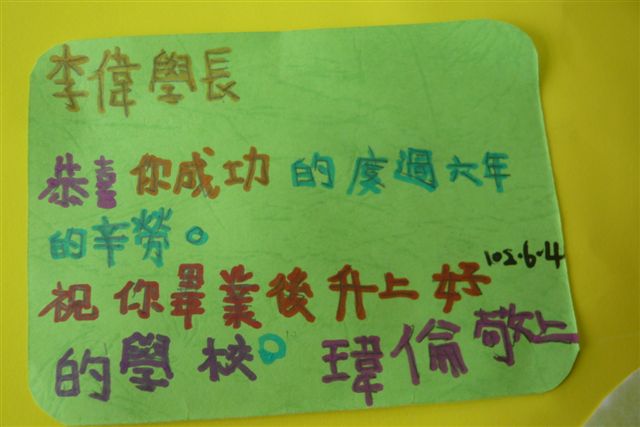 李偉學長
恭喜你成功的度過六年
的辛勞。
102.6.4
祝你畢業後升上好
的學校。瑋倫敬上